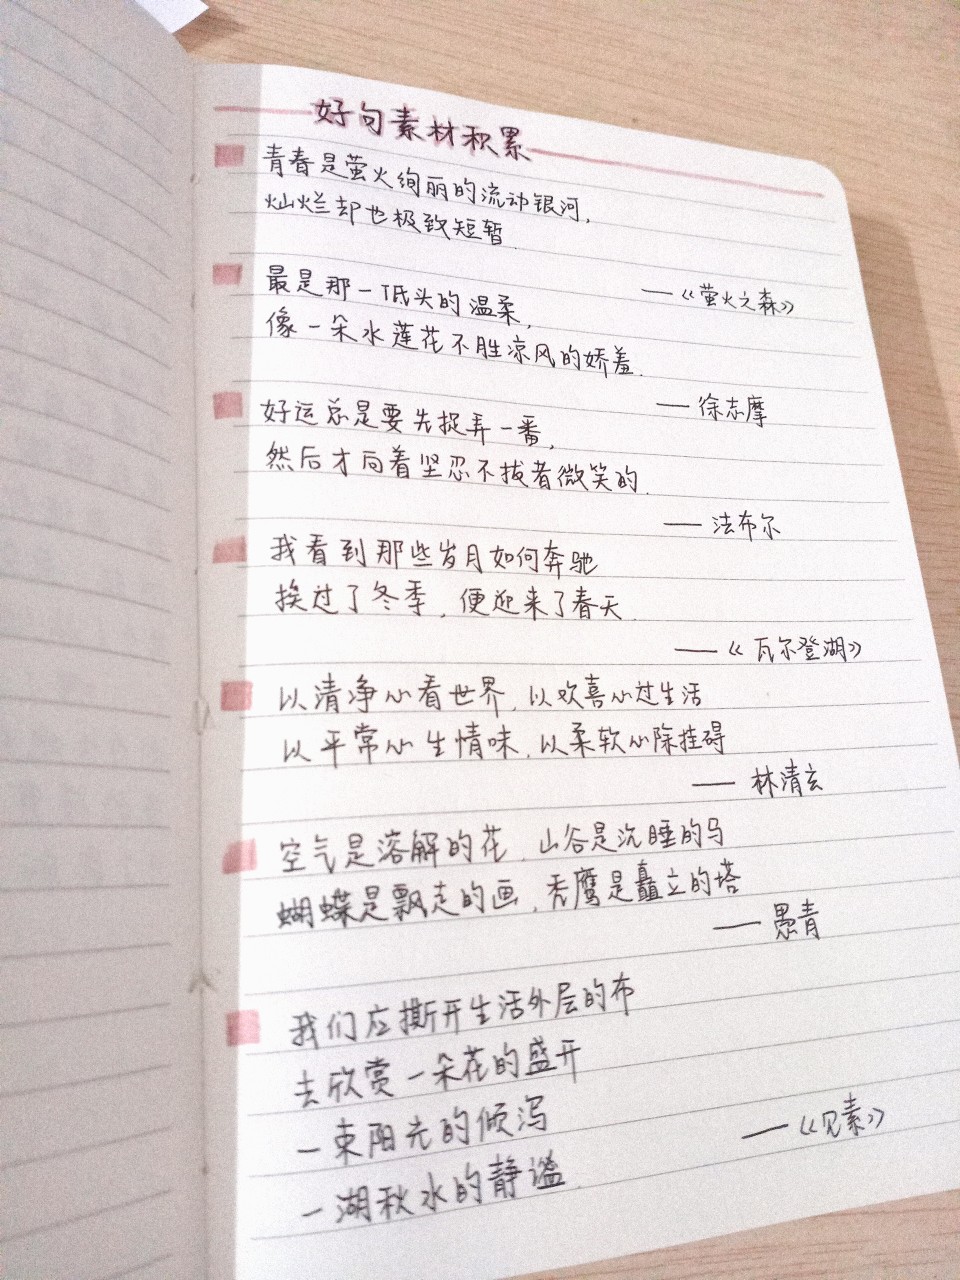 好句素材积累
青春是萤火绚丽的流动银河,
灿烂却也极致短暂.
——《萤火之森》
最是那一低头的温柔,
像一朵水莲花不胜凉风的娇羞.
——徐志摩
好运总是要先捉弄一番,
然后才向着坚忍不拔者微笑的.
——法布尔
我看到那些岁月如何奔驰
挨过了冬季,便迎来了春天.
——《瓦尔登湖》
以清净心看世界,以欢喜心过生活
以平常心生情味,以柔软心除挂碍
——林清玄
空气是溶解的花,山谷是沉睡的马
蝴蝶是飘走的画,秃鹰是矗立的塔
——愚青
我们应撕开生活外层的布
去欣赏一朵花的盛开
一束阳光的倾泻
一湖秋水的静谧.
——《见素》